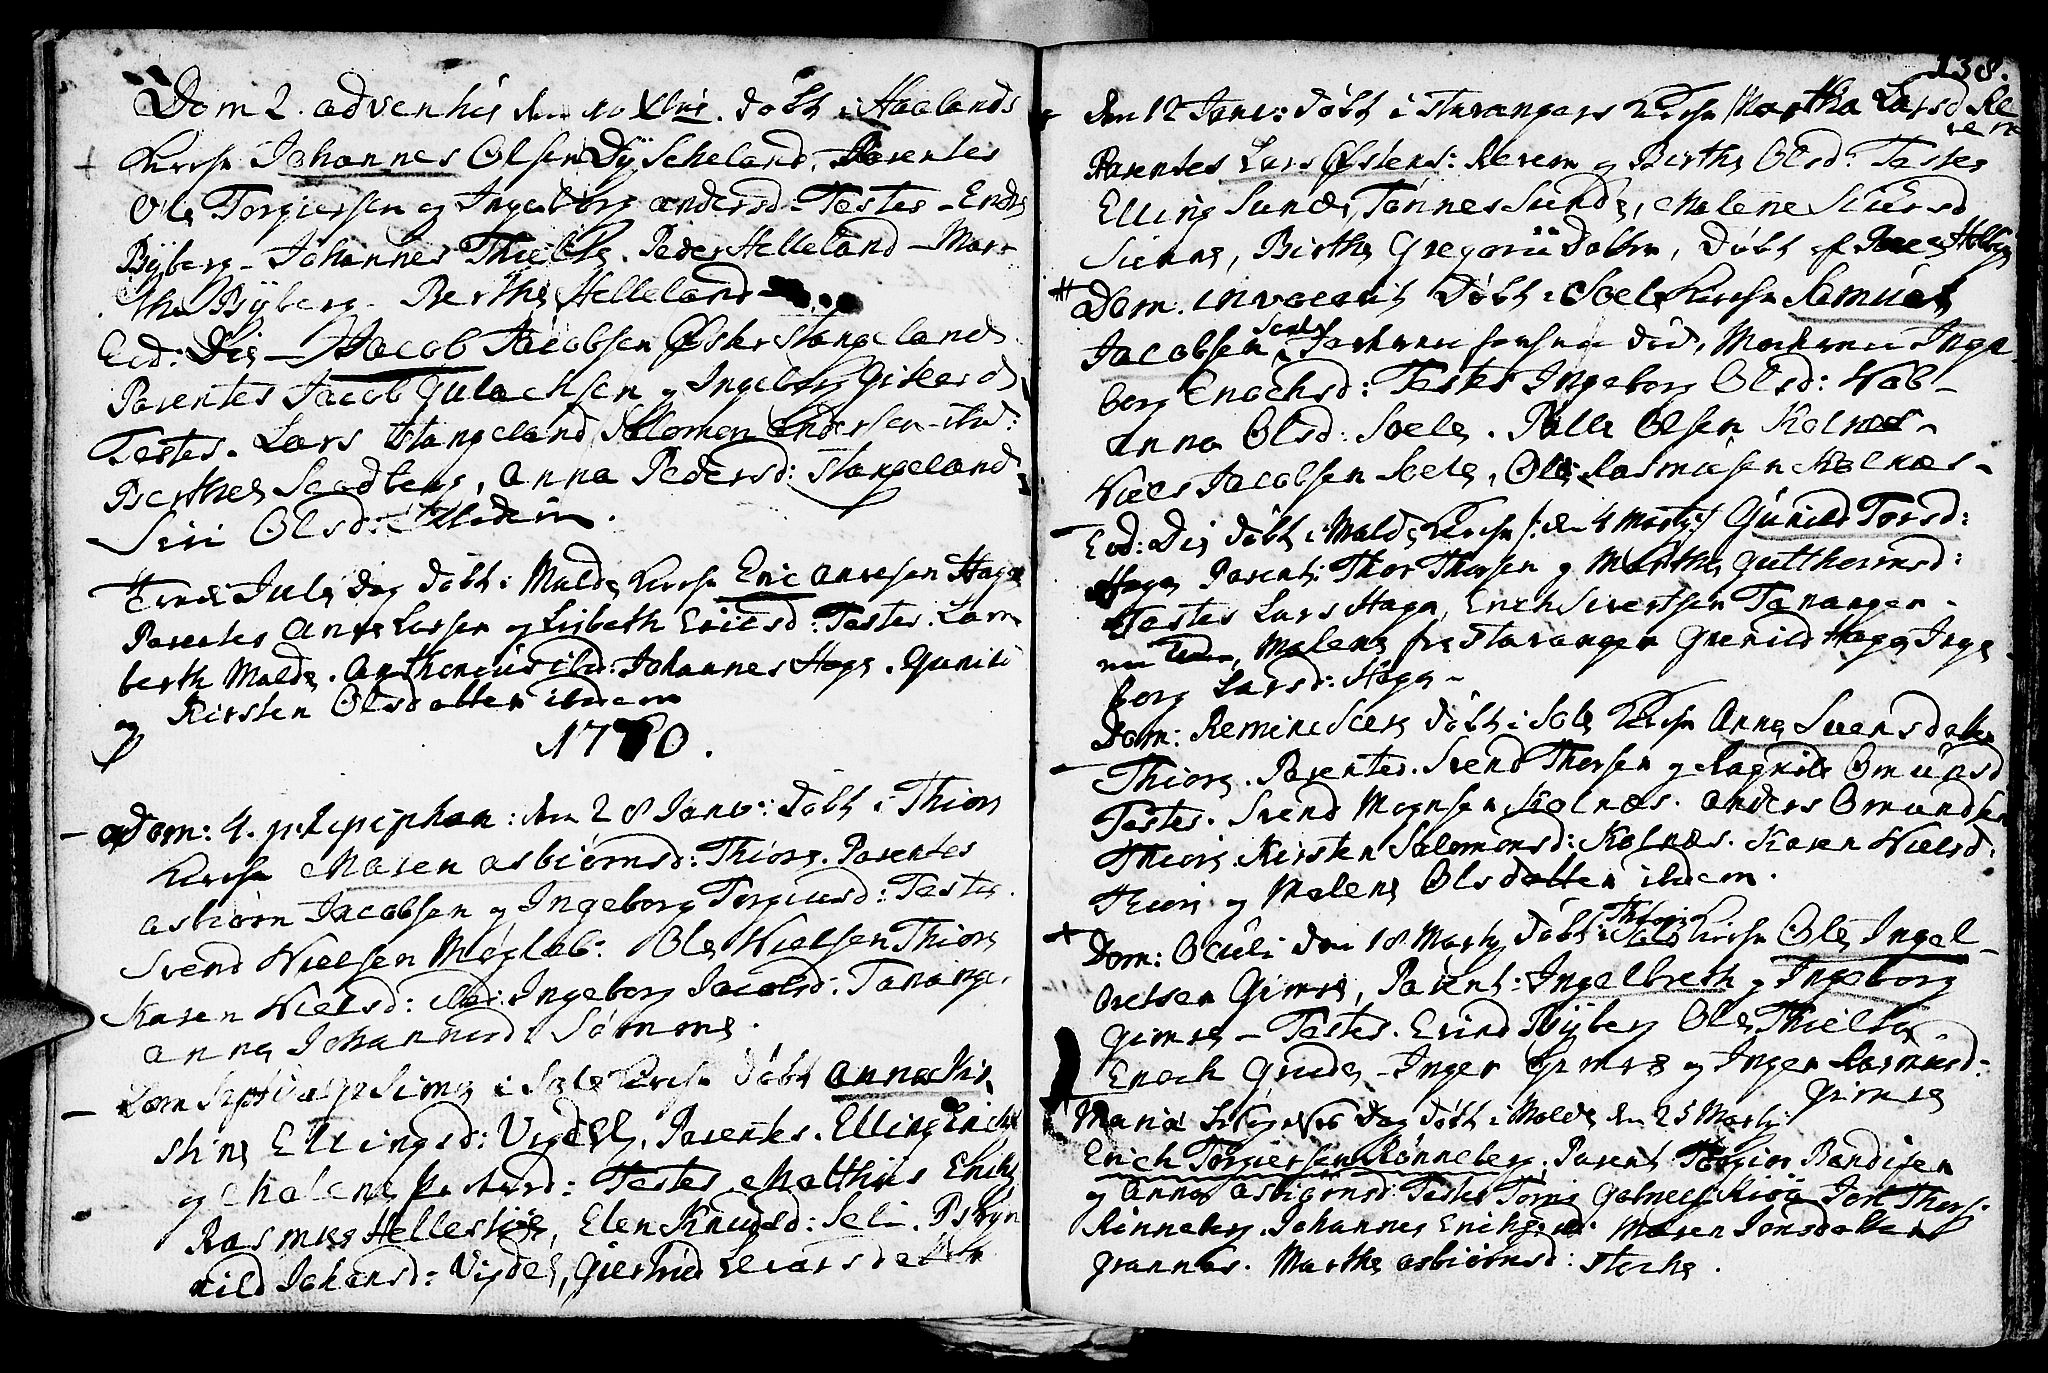 Dom 2. adventus den 10 Xbris. døbt i Haalands
Kirche Johannes Olsen Dysicheland. Parentes
Ole Torgiersen og Ingeborg andersd. Testes - Endre
Byberg - Johannes Thielta. Peder Helleland - Mar-
tha Byberg. Berthe Helleland
Eod: Die - Jacob Jacobsen Øster Stangeland
Parentes Jacob Gulachsen og Ingeborg
Testes. Lars Stangeland Salomon andersen ibid:
Berthe, anna Pedersd: Stangeland
Siri Olsd: ibidem.
Juledag døbt i Malde Kirche Eric Anvesen Haga
Parentes Anve Larsen og Lisbeth Ericsd: Testes. Lam-
berth Malde. Anthonius ibid: Johannes Haga. Gunild
og Kirsten Olsdatter ibidem
1770.
Dom: 4. p. Epiphan: den 28 Janv: døbt i Thiore
Kirche Maren asbiørnsd: Thiore. Parentes
asbiørn Jacobsen og Ingeborg Torgiersd: Testes.
Svend Nielsen Møgleb: Ole Nielsen Thiore
Karen Nielsd: ibid: Ingeborg Jacobsd: Tananger
anna Johannesd Sømme.
Dom Septuagesima i Sole Kirche døbt anna Kir-
stine Ellingsd: Vigdel, Parentes. Elling Erichs
og Malene: Testes Matthiis Erichs
Rasmus Hellestøe, Elen Knudsd: Sele.
nild Johansd: Vigdel, Giertrud Ivarsdatter
138.
den 12 Janv: døbt i Stavangers Kirche Martha Larsd Re
vem
Parentes Lars Østens: Revem og Birthe Olsd: Testes
Elling Sunde, Tønnes Sunde, Malene Siursd
Sunne, Birthe Gregorii Datter, døbt af
Dom. invocavit døbt i Soele Kirche Samuel
Jacobsen Soele, Faderen forhen død, Moderen Inge-
borg Enochsd: Testes Ingeborg Olsd:
anna Olsd: Soele. Palle Olsen Kolnes -
Niels Jacobsen Soele, Ole Rasmusen Kolnæs -
Eod: Die døbt i Malde Kirche /: den 4 Marty :/ Gunild Torsd:
Haga Parent: Thor Thorsen og Marthe Gutthormsd:
Testes Lars Haga, Erich Sivertsen Tananger -
Malene fra Stavanger Gunild Haga Inge-
borg Larsd: Haga -
Dom: Reminiscere døbt i Sole Kirche Anne Svensdatter
Thiore. Parentes. Svend Thorsen og Ragnild Omunsd
Testes. Svend Mognsen Kolnæs. anders Omundsen
Thiore Kirsten Salomonsd: Kolnæs. Karen Nielsd:
Thiore og Malene Olsdatter ibidem.
Dom: Oculi den 18 Marty døbt i Thiore Kirche Ole Ingel-
bretsen Gimre, Parent: Ingelbreth og Ingeborg
Gimre - Testes. Erind Byberg Ole Thielta
Enoch Grude - Inger Gimre og Inger Rasmusd:
Gimre
Mariæ Dag døbt i Malde den 25 Marty
Erich Torgiersen Rønneberg. Parent Torgier
og Anna asbiørnsd: Testes Tørris Joel Thors:
Rønneberg. Johannes Erichs: Maren Jonsdatter
Grannes. Marthe asbiørnsd: Stoche.